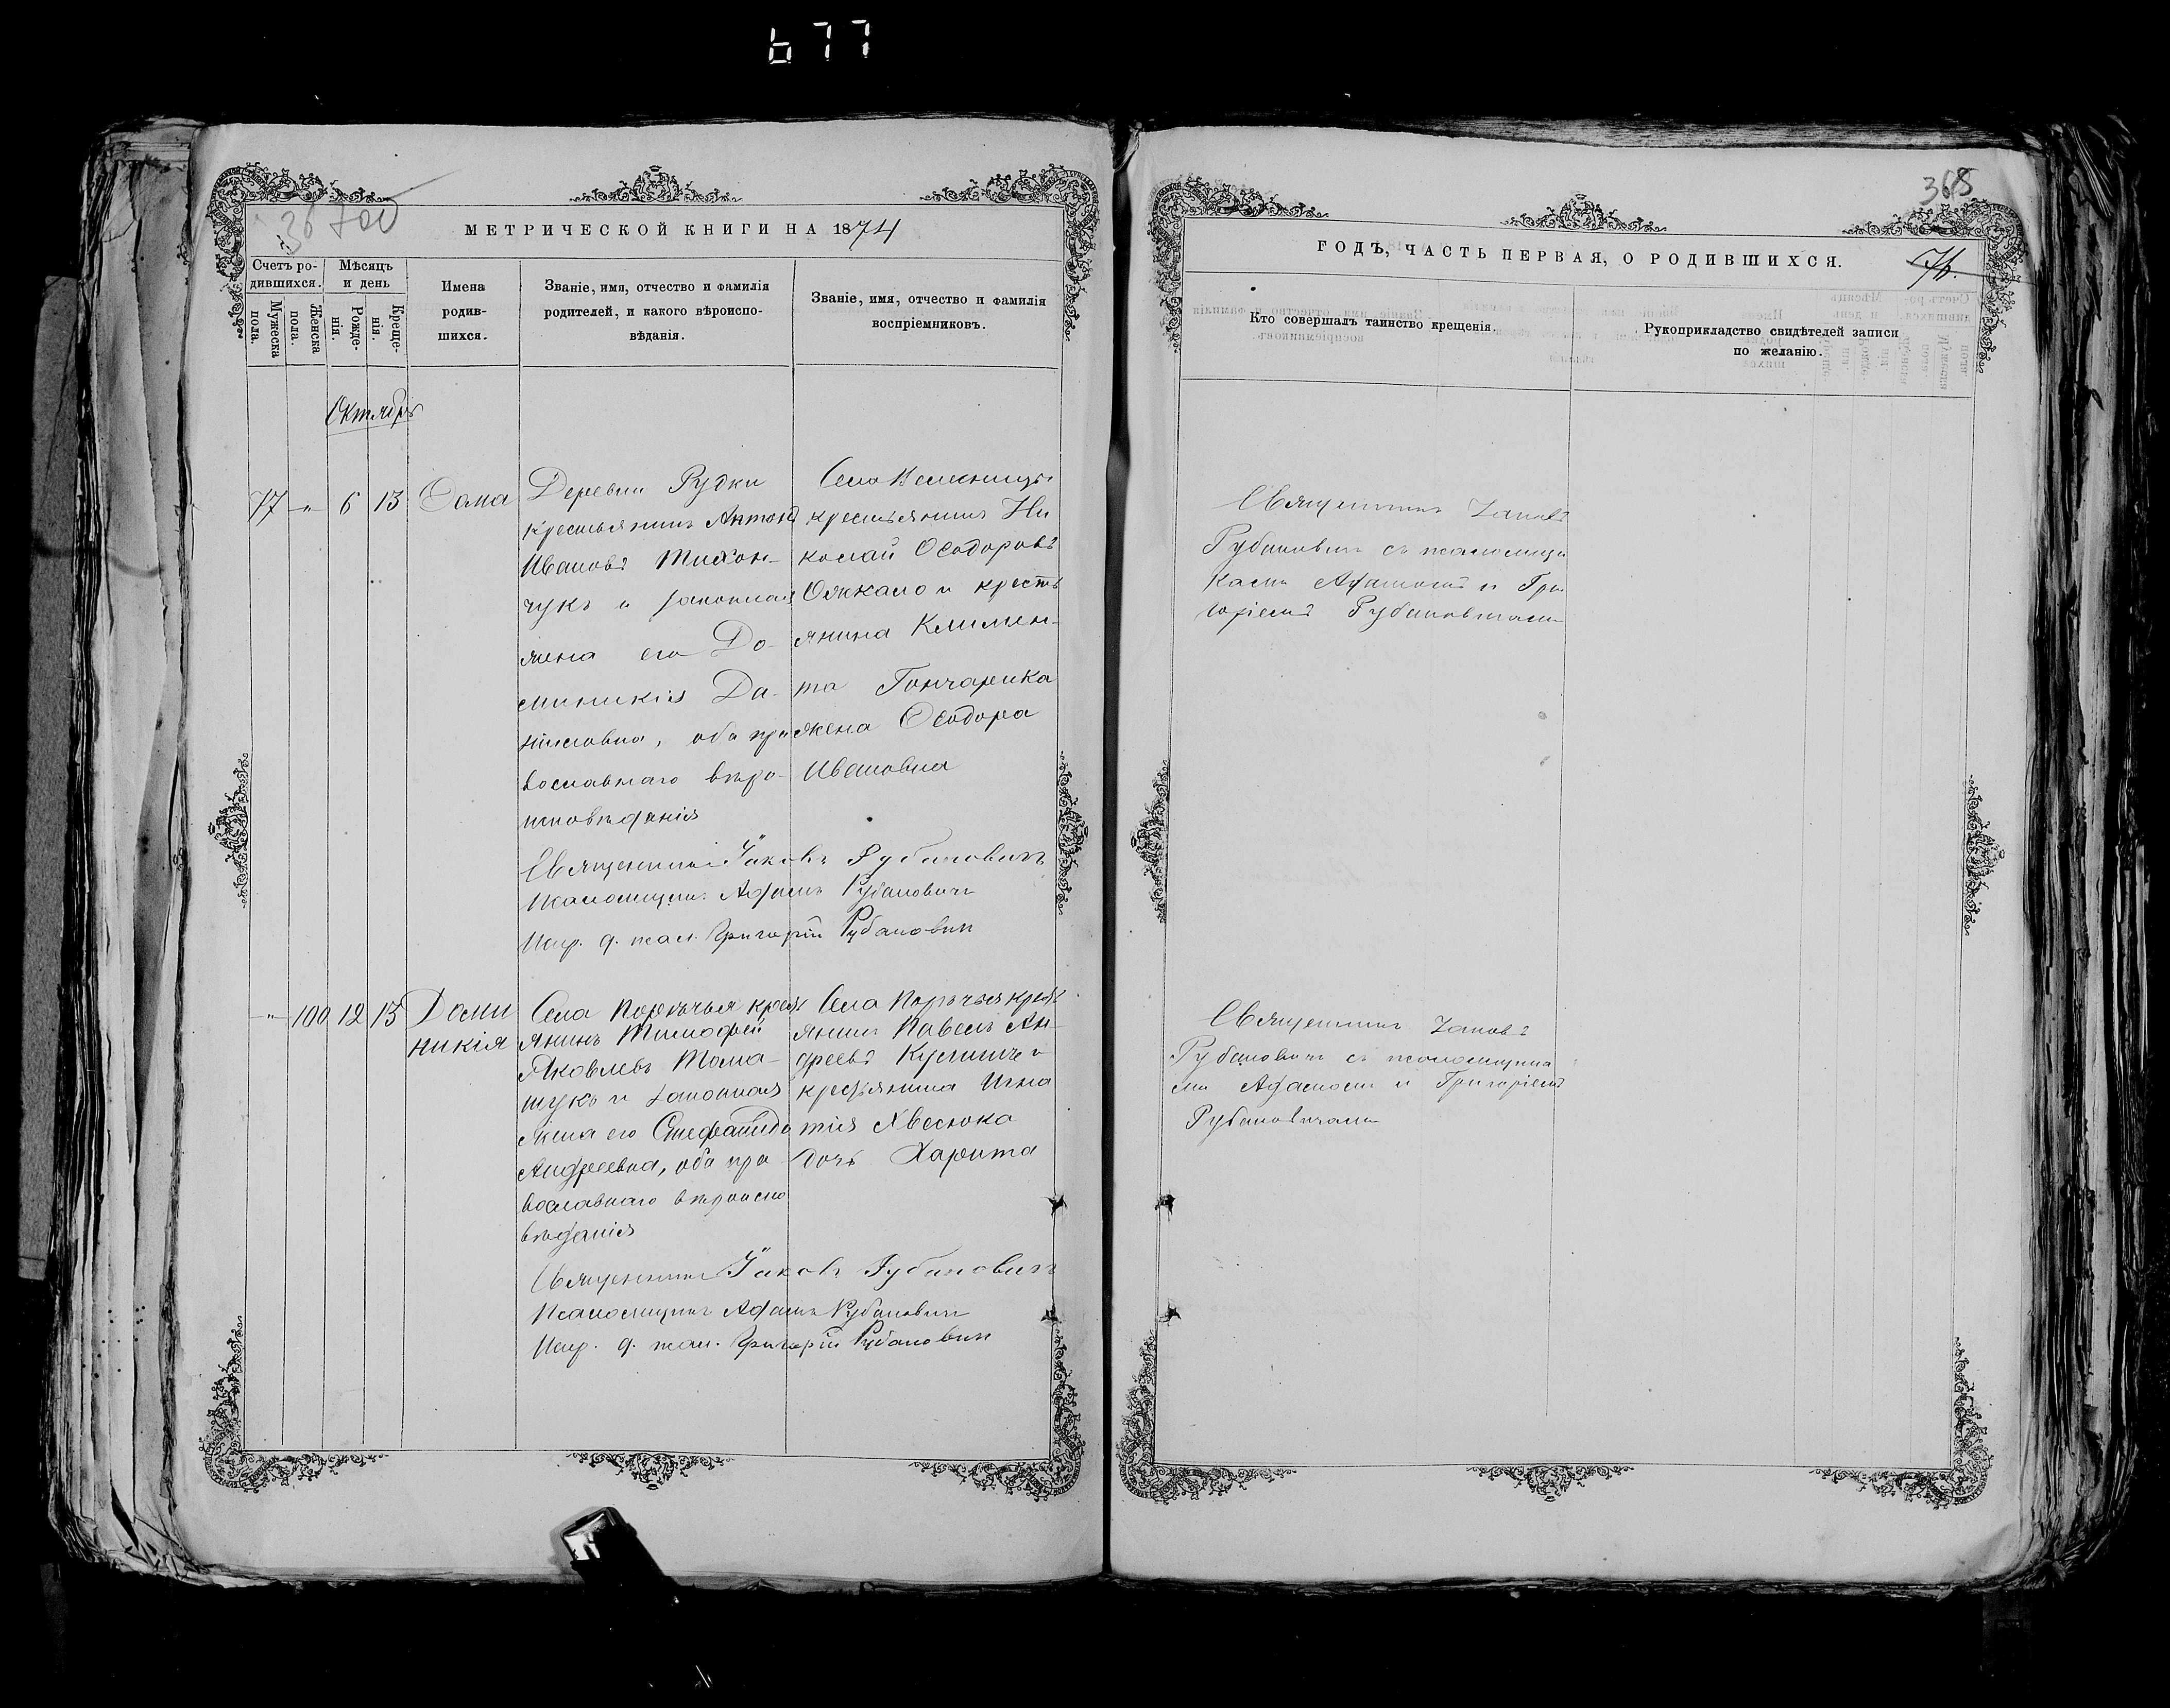 677
365
76.
МЕТРИЧЕСКОЙ КНИГИ НА 1874
ГОДЪ, ЧАСТЬ ПЕРВАЯ, О РОДИВШИХСЯ.
Счетъ ро-
дившихся.
Мужеска
пола.
Женска
пола.
Мѣсяцъ
и день
Рожде-
нія.
Креще-
нія.
Имена
родив-
шихся.
Званіе, имя, отчество и фамилія
родителей, и какого вѣроиспо-
вѣданія.
Званіе, имя, отчество и фамилія
воспріемниковъ.
Кто совершалъ таинство крещенія.
Рукоприкладство свидѣтелей записи
по желанію.
Октябрь
77 " 6 13 Ѳома
Деревни Рудки
крестьянинъ Антонъ
Ивановъ Тихон-
чукъ и законная
жена его До-
миникія Да-
ниловна, оба пра
вославнаго вѣро-
исповѣданія
Село
крестьянинъ Ни
колай Ѳеодоровъ
и кресть
янина Климен-
та Гончарика
жена Ѳеодора
Ивановна
Священникъ Іаковъ Рубановичъ
Псаломщикъ Адамъ Рубановичъ
Испр. д. псал. Григорій Рубановичъ
Священникъ Іаковъ
Рубановичъ съ псаломщи
ками Адамомъ и Гри
горіемъ Рубановичами
" 100 12 13 Доми
никія
Села Порѣчья крест
янинъ Тимофей
Яковлевъ Тома-
шукъ и законная
жена его Стефанида
Андреевна, оба пра
вославнаго вѣроиспо
вѣданія
Села Порѣчья крест
янинъ Павелъ Ан-
дреевъ и
крестьянина Игна
тія Хвесюка
дочь Харита
Священникъ Іаковъ Рубановичъ
Псаломщикъ Адамъ Рубановичъ
Испр. д. псал. Григорій Рубановичъ
Священникъ Іаковъ
Рубановичъ съ псаломщика
ми Адамомъ и Григоріемъ
Рубановичами